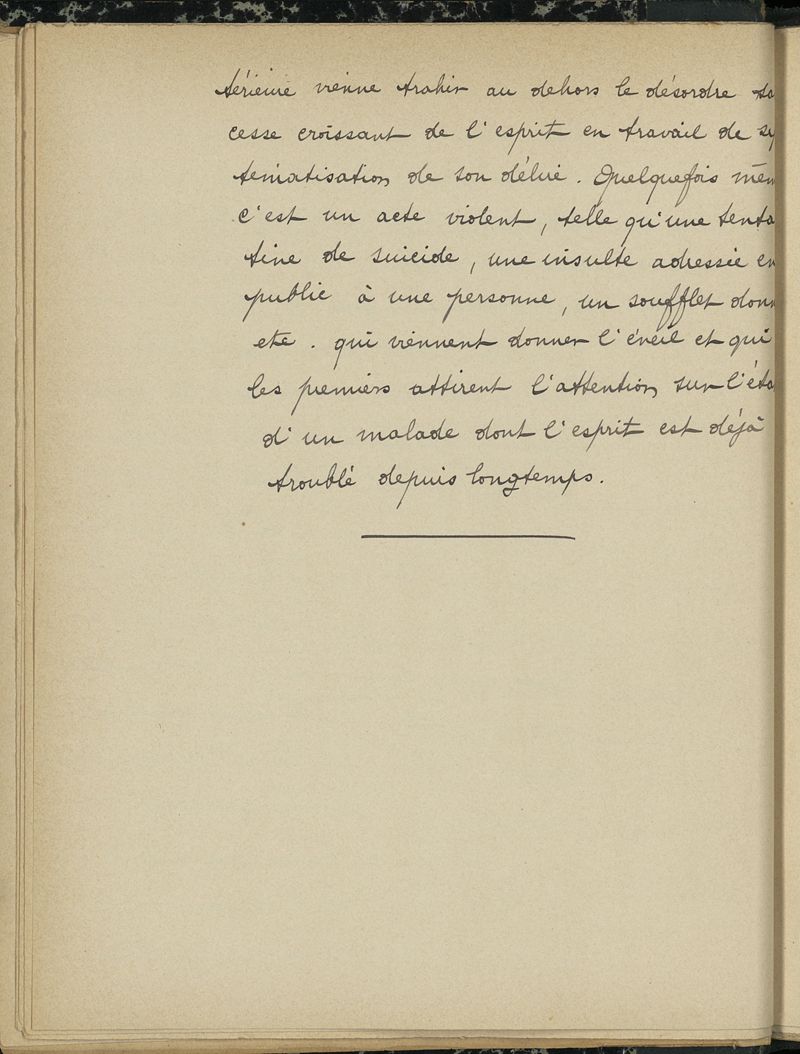 térieure vienne trahir au dehors le désordre sa
cesse croissant de l'esprit en travail de sy
tématisation de son délire. Quelquefois mêm
c'est un acte violent, telle qu'une tenta
tive de suicide, une insulte adressée en
public à une personne, un soufflet donn
etc. qui viennent donner l'éveil et qui
les premiers attirent l'attention sur l'éta
d'un malade dont l'esprit est déjà
troublé depuis longtemps.